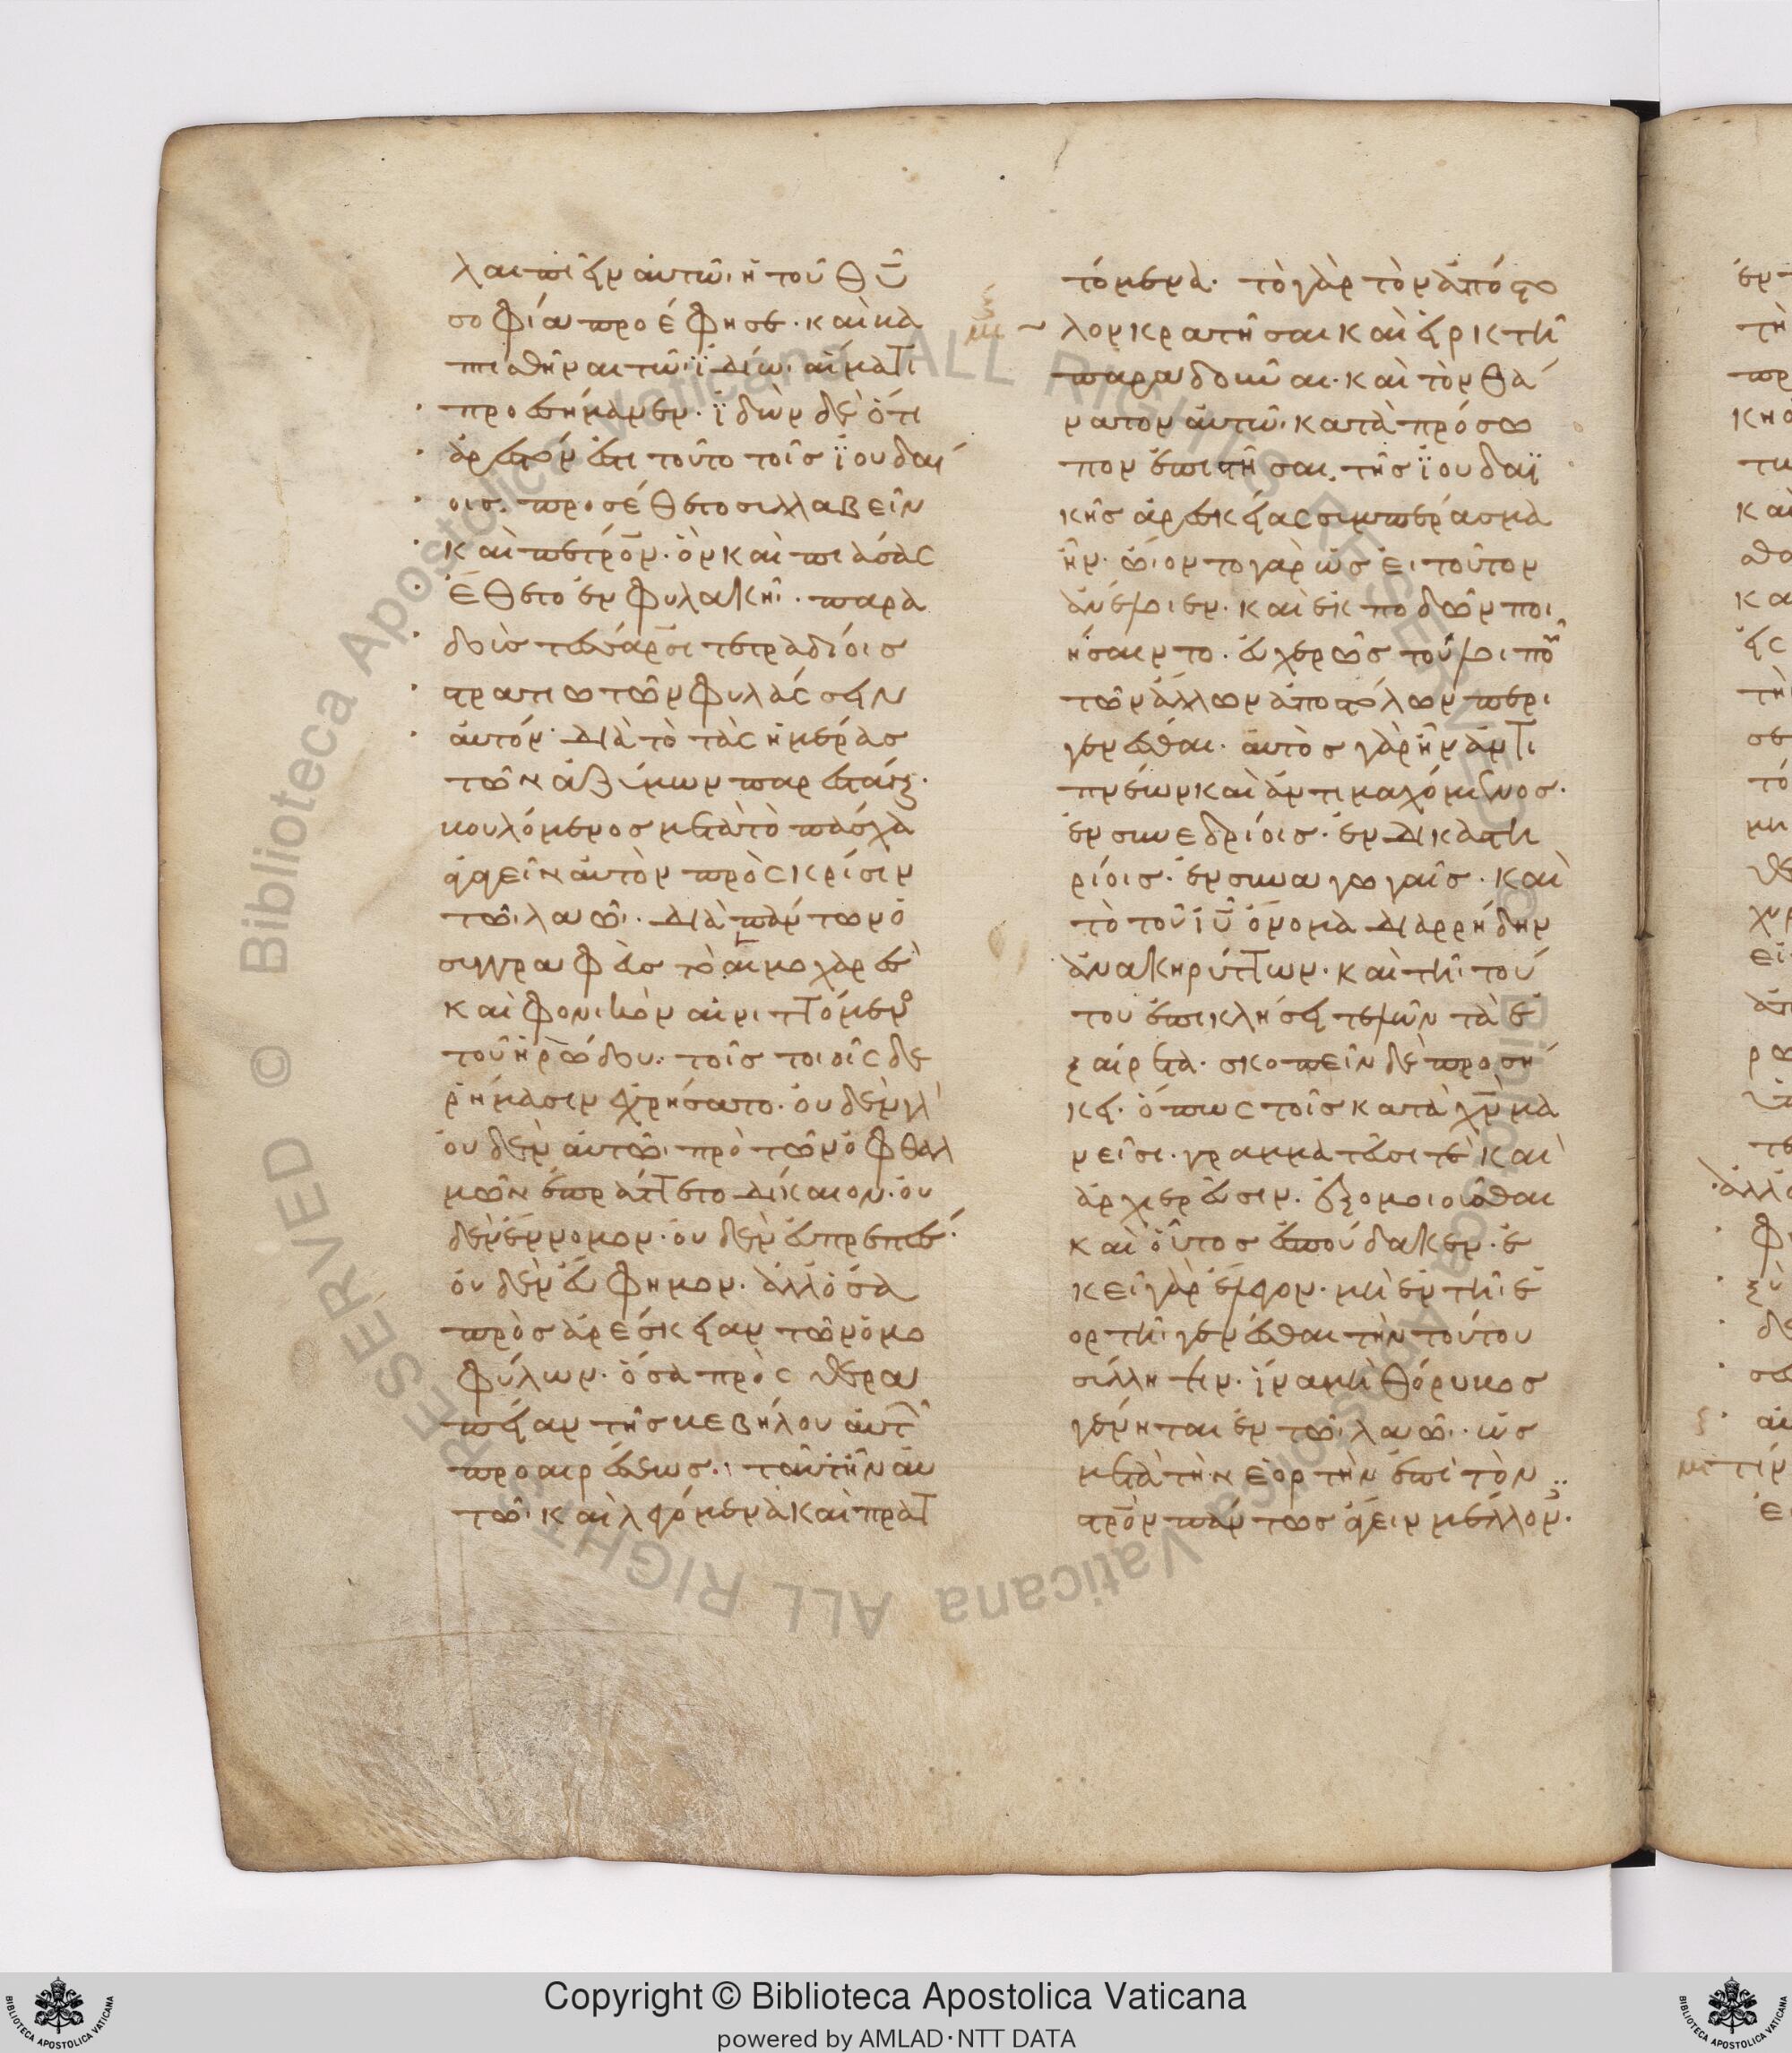 λαιπεῖν αὐτῶι ἡ τοῦ θῦ
σοφία προέφησε· καὶ βα
πτισθῆναι τῶι ϊδίωι αἵματι
προεσήμανεν· ϊδὼν δὲ ὅτι
ἀρεστόν ἐστι τοῦτο τοῖς ϊουδαί
οις. προσέθετο συλλαβεῖν
καὶ πέτρον· ὃν καὶ πιάσας
ἔθετο ἐν φυλακῆι· παρα
δοὺς τέσσαρσι τετραδίοις
στρατιωτῶν φυλάσσειν
αὐτόν· διὰ τὸ τὰς ἡμέρας
τῶν ἀζύμων παρεστάναι·
βουλόμενος μετὰ τὸ πάσχα
ἀγαγεῖν αὐτὸν πρὸς κρίσιν
τῶι λαῶι· διὰ πάντων ὁ
συγγραφεὺς τὸ αἱμοχαρὲς
καὶ φονικὸν αἰνιττόμενος
τοῦ ἡρώδου· τοῖς τοιοῖσδε
ῥήμασιν ἐχρήσατο· οὐδὲν γὰρ
οὐδὲν αὐτῶι πρὸ τῶν ὀφθαλ
μῶν ἐπράττετο δίκαιον· οὐ
δὲν ἔννομον· οὐδὲν εὐπρεπές·
οὐδὲν εὔφημον· ἀλλ' ὅσα
πρὸς ἀρέσκειαν τῶν ὁμο
φύλων· ὅσα πρὸς θερα
πείαν τῆς βεβήλου αὐτοῦ
προαιρέσεως· ταῦτα ἦν αὐ
τῶι καὶ λεγόμενα καὶ πρατ
τόμενα· τὸ γὰρ τὸν ἀπόστο
λον κρατῆσαι καὶ εἱρκτῆι
παραδοῦναι· καὶ τὸν θά
νατον αὐτῶι κατὰ πρόσω
πον ἐπιστῆσαι. τῆς ϊουδαϊ
κῆς ἀρεσκείας συμπέρασμα
ἦν· ὤιοντο γὰρ ὡς εἰ τοῦτον
ἀνέλοιεν· καὶ ἐκποδὼν ποι
ήσαιντο· εὐχερῶς τοῦ λοιποῦ
τῶν ἄλλων ἀποστόλων περι
γενέσθαι· αὐτὸς γὰρ ἦν ἀντι
πνέων καὶ ἀντιμαχόμενος·
ἐν συνεδρίοις· ἐν δικαστη
ρίοις· ἐν συναγωγαῖς· καὶ
τὸ τοῦ ἰῦ ὄνομα διαρρήδην
ἀνακηρύττων· καὶ τῆι τού
του ἐπικλήσει τελῶν τὰ ἐ
ξαίρετα· σκοπεῖν δὲ προσή
κει· ὅπως τοῖς κατὰ χῦ μα
νεῖσι· γραμματεῦσί τε καὶ
ἀρχιερεῦσιν· ἐξομοιοῦσθαι
καὶ οὗτος ἐσπούδακεν· ἐ
κεῖ γὰρ ἔλεγον· μὴ ἐν τῆι ἑ
ορτῆι γενέσθαι τὴν τούτου
σύλληψιν· ἵνα μὴ θόρυβος
γένηται ἐν τῶι λαῶι· ὡς
μετὰ τὴν ἑορτὴν ἐπὶ τὸν
στρὸν πάντως ἄξειν μέλλον·